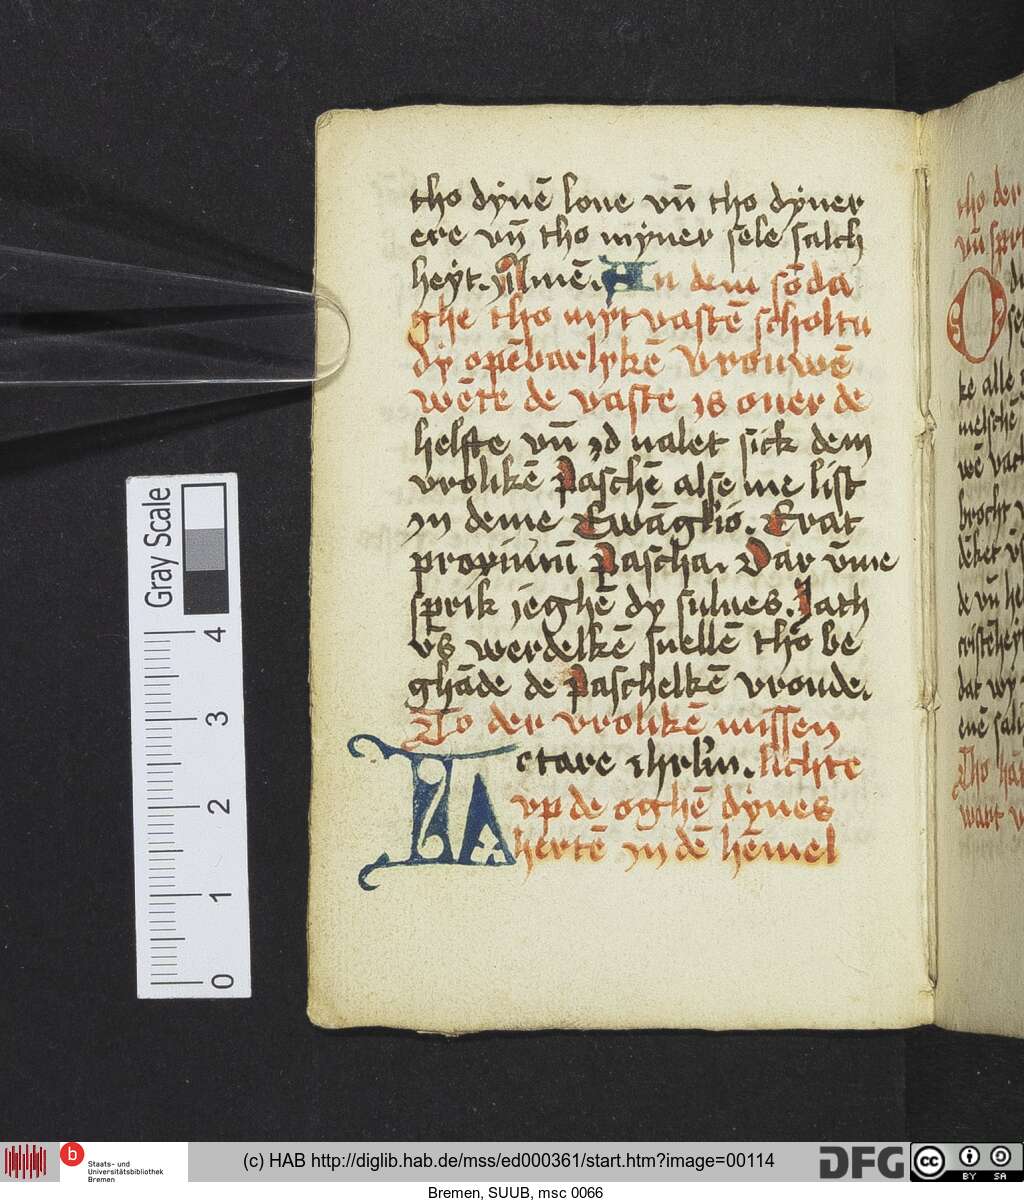 tho dẏnē loue vn̄ tho dẏner
ere vn̄ tho mẏner sele salch
heẏt. Amē. An dem sōda
ghe tho mẏtvastē scholtu
dẏ opēbarlẏkē vrouwē
wēte de vaste is ouer de
helfte vn̄ nalet sick dem
vrolikē Paschē alse me list
in deme Ewāglio. Erat
proximū Pascha. Dar v̄me
sprik ieghē dẏ sulues. Nach
werdelkē snellē tho be
ghāde de Paschelkē vroude.
To der vrolikē missen
LAetare ihrl'm. lichte
vp de oghē dẏnes
hertē in dē hēmel
tho der
vn̄ spr
O
ke alle
mesche
wē
brocht
de vn̄ he
cristēheẏt
dat wẏ
euē sali
Tho
want
Gray Scale
4
3
2
1
0
b
Staats- und
Universitätsbibliothek
Bremen
(c) HAB http://diglib.hab.de/mss/ed000361/start.htm?image=00114
DFG
cc
BY SA
Bremen, SUUB, msc 0066